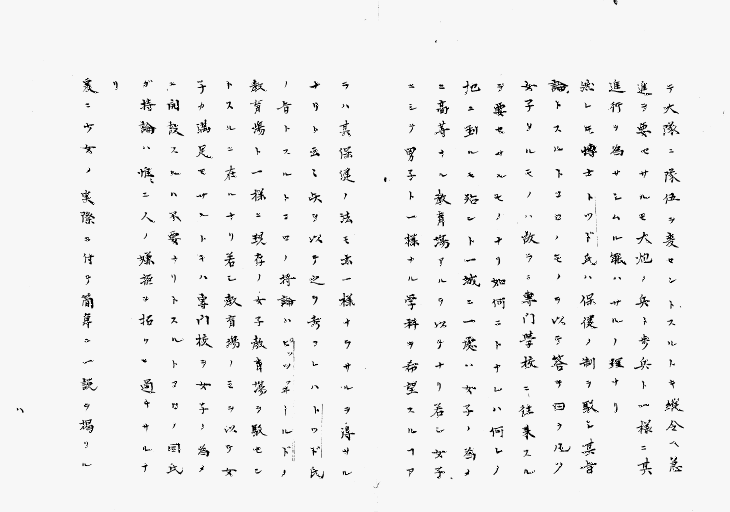 テ大隊ニ隊伍ヲ変セントスルトキ縦令ヘ急
進ヲ要セサルモ大炮ノ兵ト歩兵ト一様ニ其
進行ヲ為サシムル能ハサルノ理ナリ
然レ𪜈博士トワド氏ハ保健ノ制ヲ駁シ其旨
論トスルトコロノモノヲ以テ答ヲ曰ク凡ソ
女子タルモノハ故ラニ専門学校ニ往来スル
ヲ要セサルモノナリ如何ニトナレハ何レノ
地ニ到ルモ殆ント一城ニ一處ハ女子ノ為メ
ニ高等ナル教育場アルヲ以テナリ若シ女子
ニシテ男子ト一様ナル学科ヲ希望スルコア
ラハ其保健ノ法モ亦一様ナラサルヲ得サル
ナリト云々此ヲ以テ之ヲ考フレハトワド氏
ノ旨トスルトコロノ持論ハピッツネールドノ
教育場ト一様ニ現存ノ女子教育場ヲ駁セン
トスルニ在ルナリ若シ教育場ノミヲ以テ女
子カ満足セサルトキハ専門校ヲ女子ノ為メ
ニ開設スルハ不要ナリトスルトコロノ同氏
ガ持論ハ惟ニ人ノ嫌疑ヲ招クニ過キサルナ
リ
爰ニ少女ノ実際ニ付テ簡単ニ一説ヲ掲クル